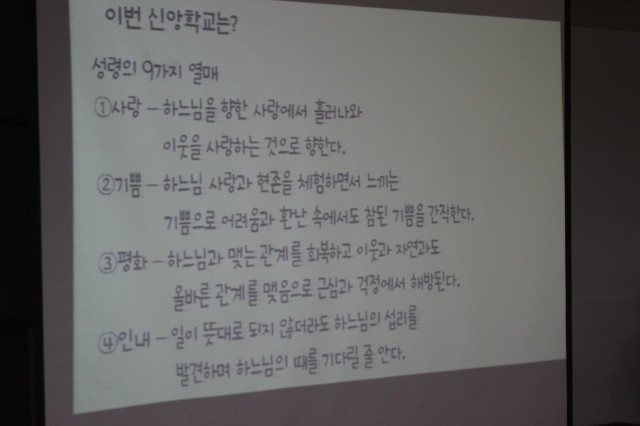 이번 신앙학교는?
성령의 9가지 열매
①사랑 – 하느님을 향한 사랑에서 흘러나와
이웃을 사랑하는 것으로 향한다.
②기쁨 – 하느님 사랑과 현존을 체험하면서 느끼는
기쁨으로 어려움과 환난 속에서도 참된 기쁨을 간직한다.
③평화 – 하느님과 맺는 관계를 회복하고 이웃과 자연과도
올바른 관계를 맺음으로 근심과 걱정에서 해방된다.
④인내 – 일이 뜻대로 되지 않더라도 하느님의 섭리를
발견하며 하느님의 때를 기다릴 줄 안다.